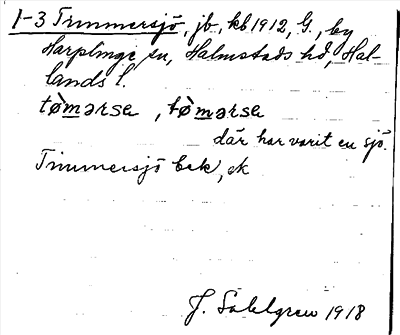 1-3 Timmersjö, jb, kb 1912, G., by
Harplinge sn, Halmstads hd, Hal-
lands l.
tòmərsə, tòmərsə
där har varit en sjö.
Timmersjö bek, ek
J. Sahlgren 1918